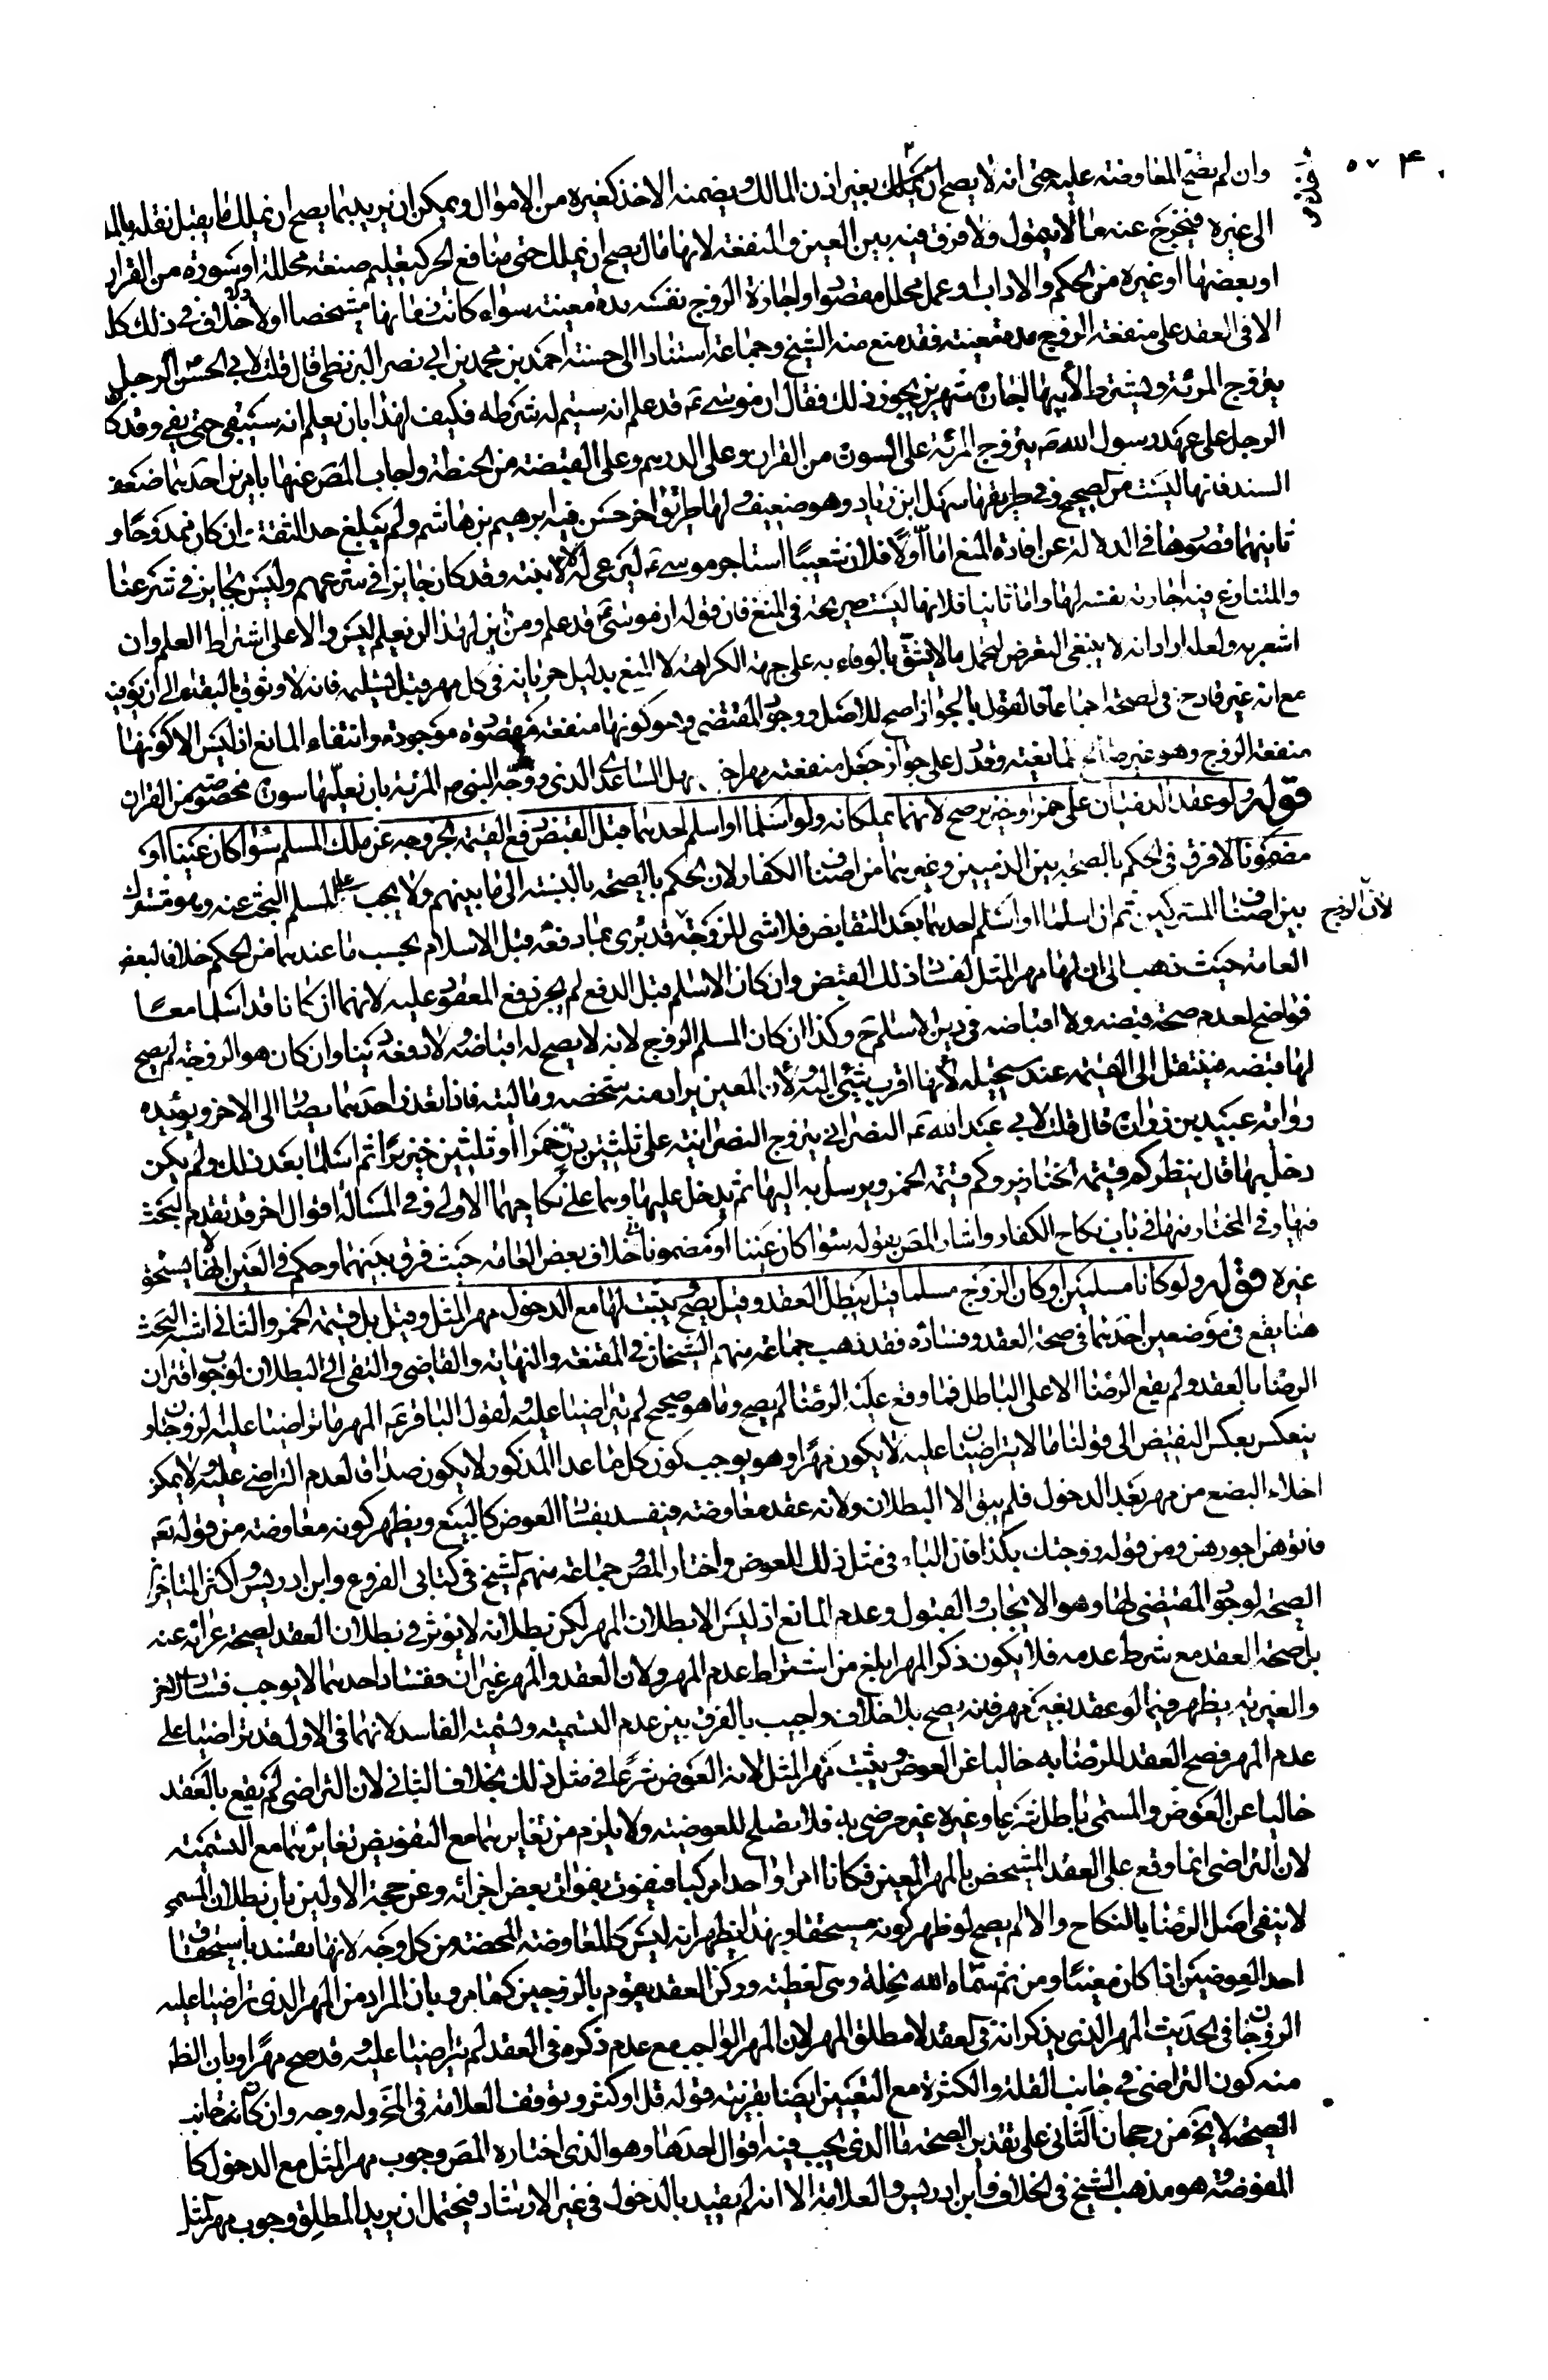 ٥٧٤
وان لم يصح المعاوضة عليه حتى انه لا يصح ان يملك بغير اذن المالك ويضمنه الاخذ كغيره من الاموال ويمكن ان يريد بما يصح ان يملك ما يقبل نقله بالملك
الى غيره فيخرج عنه ما لا يتمول ولا فرق فيه بين العين والمنفعة لانها مال يصح ان يملك حتى منافع الحر كتعليم صنعة محللة او سورة من القران
او بعضها او غيره من الحكم والاداب وعمل محلل مقصود واجارة الزوج نفسه مدة معينة سواء كانت متشخصا اولا لا خلاف في ذلك كله
الا في العقد على منفعة الزوج مدة معينة فقد منع منه الشيخ وجماعة استنادا الى حسنة احمد بن محمد بن ابي نصر البزنطي قال قلت لابي الحسن ع الرجل
يتزوج المرئة ويشترط لابيها اجارة شهرين يجوز ذلك فقال ان موسى ع قد علم انه سيتم له شرطه فكيف لهذا بان يعلم انه سيبقى حتى يفي وقد كان
الرجل على عهد رسول الله ص يتزوج المرئة على السورة من القران وعلى الدرهم وعلى القبضة من الحنطة واجاب المص عنها بامرين احدهما ضعف
السند فانها ليست من الصحيح وفي طريقها سهل ابن زياد وهو ضعيف ولها طريق اخر حسن فيه ابرهيم بن هاشم ولم يبلغ حد الثقة وان كان ممدوحا و
ثانيهما قصورها في الدلالة عن افادة المنع اما اولا فلان شعيبا استاجر موسى ع ليرعى له لا لابنته وقد كان جايزا في شرعهم وليس بجايز في شرعنا
والمتنازع فيه اجارته نفسه لها واما ثانيا فلانها ليست صريحة في المنع فان قوله ان موسى ع قد علم ومن اين لهذا ان يعلم ليس دالا على اشتراط العلم وان
اشعر به ولعله اراد انه لا ينبغي التعرض لتحمل ما لا يثق بالوفاء به على جهة الكراهة لا المنع بدليل جريانه في كل مهر قبل تسليمه فانه لا وثوق بالبقاء الى ان يوفيه
مع انه غير قادح في الصحة اجماعا فالقول بالجواز اصح للاصل ووجود المقتضي وهو كونها منفعة مقصودة موجودة وانتفاء المانع اذ ليس الا كونها
منفعة الزوج وهو غير صالح لمانعيته وقد دل على جواز جعل منفعته مهرا سهل الساعدي الذي زوجه النبي ص المرئة بان يعلمها سورة مخصوصة من القران
قوله ولو عقد الذميان على خمر او خنزير صح لانهما يملكانه ولو اسلما او اسلم احدهما قبل القبض دفع القيمة لخروجه عن ملك المسلم سواء كان عينا او
مضمونا لا فرق في الحكم بالصحة بين الذميين وغيرهما من اصناف الكفار لان الحكم بالصحة بالنسبة الى ما بينهم ولا يجب على المسلم البحث عنه وهو مشترك
بين اصناف المشركين ثم ان اسلما او اسلم احدهما بعد التقابض فلا شئ للزوجة لان الزوج قد برئ مما دفعه قبل الاسلام بحسب ما عندهما من الحكم خلافا لبعض
العامة حيث ذهب الى ان لها مهر المثل لفساد ذلك القبض وان كان الاسلام قبل الدفع لم يجز دفع المعقود عليه لانهما ان كانا قد اسلما معا
فواضح لعدم صحة قبضه ولا اقباضه في دين الاسلام ح وكذا ان كان المسلم الزوج لانه لا يصح له اقباضه ولا دفعه ثمنا وان كان هو الزوجة لم يصح
لها قبضه فينتقل الى القيمة عند مستحليه لانها اقرب شئ اليه ولان المعين يراد منه شخصه وماليته فاذا تعذر احدهما يصار الى الاخر ويؤيده
رواية عبيد بن زرارة قال قلت لابي عبد الله ع النصراني يتزوج النصرانية على ثلثين دن خمرا او ثلثين خنزيرا ثم اسلما بعد ذلك ولم يكن
دخل بها قال ينظر كم قيمة الخنازير وكم قيمة الخمر ويرسل به اليها ثم يدخل عليها وهما على نكاحهما الاول وفي المسالة اقوال اخر قد تقدم البحث
فيها وفي المختار منها في باب نكاح الكفار واشار المص بقوله سواء كان عينا او مضمونا الى خلاف بعض العامة حيث فرق بينهما وحكم في العين انها لا يستحق
غيره قوله ولو كانا مسلمين او كان الزوج مسلما قيل يبطل العقد وقيل يصح ويثبت لها مع الدخول مهر المثل وقيل بل قيمة الخمر والثاني اشبه البحث
هنا يقع في موضعين احدهما في صحة العقد وفساده فقد ذهب جماعة منهم الشيخان في المقنعة والنهاية والقاضي والتقي الى البطلان لوجوب اقتران
الرضا بالعقد ولم يقع الرضا الا على الباطل فما وقع عليه الرضا لم يصح وما هو صحيح لم يتراضيا عليه ولقول الباقر ع المهر ما تراضيا عليه الزوجان و
ينعكس بعكس النقيض الى قولنا ما لا يتراضيان عليه لا يكون مهرا وهو يوجب كون كل ما عدا المذكور لا يكون صداقا لعدم التراضي عليه ولا يمكن
اخلاء البضع من مهر بعد الدخول فلم يبق الا البطلان ولانه عقد معاوضة فيفسد بفساد العوض كالبيع ويظهر كونه معاوضة من قوله تعالى
فاتوهن اجورهن ومن قوله زوجتك بكذا فان الباء في مثل ذلك للعوض واختار المص وجماعة منهم الشيخ في كتابي الفروع وابن ادريس واكثر المتاخرين
الصحة لوجود المقتضي لها وهو الايجاب والقبول وعدم المانع اذ ليس الا بطلان المهر لكن بطلانه لا يؤثر في بطلان العقد لصحة عرائه عنه
بل صحة العقد مع شرط عدمه فلا يكون ذكر المهر ابلغ من اشتراط عدم المهر ولان العقد والمهر غيران ففساد احدهما لا يوجب فساد الاخر
والغيرية يظهر فيما لو عقد بغير مهر فانه يصح بلا خلاف واجيب بالفرق بين عدم التسمية وتسمية الفاسد لانهما في الاول قد تراضيا على
عدم المهر فصح العقد للرضا به خاليا عن العوض ويثبت مهر المثل لانه العوض شرعا في مثل ذلك بخلاف الثاني لان التراضي لم يقع بالعقد
خاليا عن العوض والمسمى باطل شرعا وغيره غير مرضي به فلا يصلح للعوضية ولا يلزم من تغايرهما مع التفويض تغايرهما مع التسمية
لان التراضي انما وقع على العقد المشخص بالمهر المعين فكانا امرا واحدا مركبا فيفوت بفوات بعض اجزائه وعن حجة الاولين بان بطلان المسمى
لا ينفي اصل الرضا بالنكاح والا لم يصح لو ظهر كونه مستحقا وبهذا يظهر انه ليس كالمعاوضة المحضة من كل وجه لانها تفسد باستحقاق
احد العوضين اذا كان معينا ومن ثم سماه الله نحلة وهي العطية وركن العقد يقوم بالزوجين كما مر وبان المراد من المهر الذي تراضيا عليه
الزوجان في الحديث المهر الذي يذكر انه في العقد لا مطلق المهر لان المهر الواجب مع عدم ذكره في العقد لم يتراضيا عليه وقد صح مهرا وبان الظاهر
منه كون التراضي في جانب القلة والكثرة مع التعيين ايضا بقرينة قوله قل او كثر وتوقف العلامة في المخ وله وجه وان كان جانب
الصحة لا يخ من رجحان الثاني على تقدير الصحة ما الذي يجب فيه اقوال احدها وهو الذي اختاره المص وجوب مهر المثل مع الدخول كا
المفوضة وهو مذهب الشيخ في الخلاف وابن ادريس والعلامة الا انه لم يقيد بالدخول في غير الارشاد فيحتمل ان يريد المطلق وجوب مهر المثل